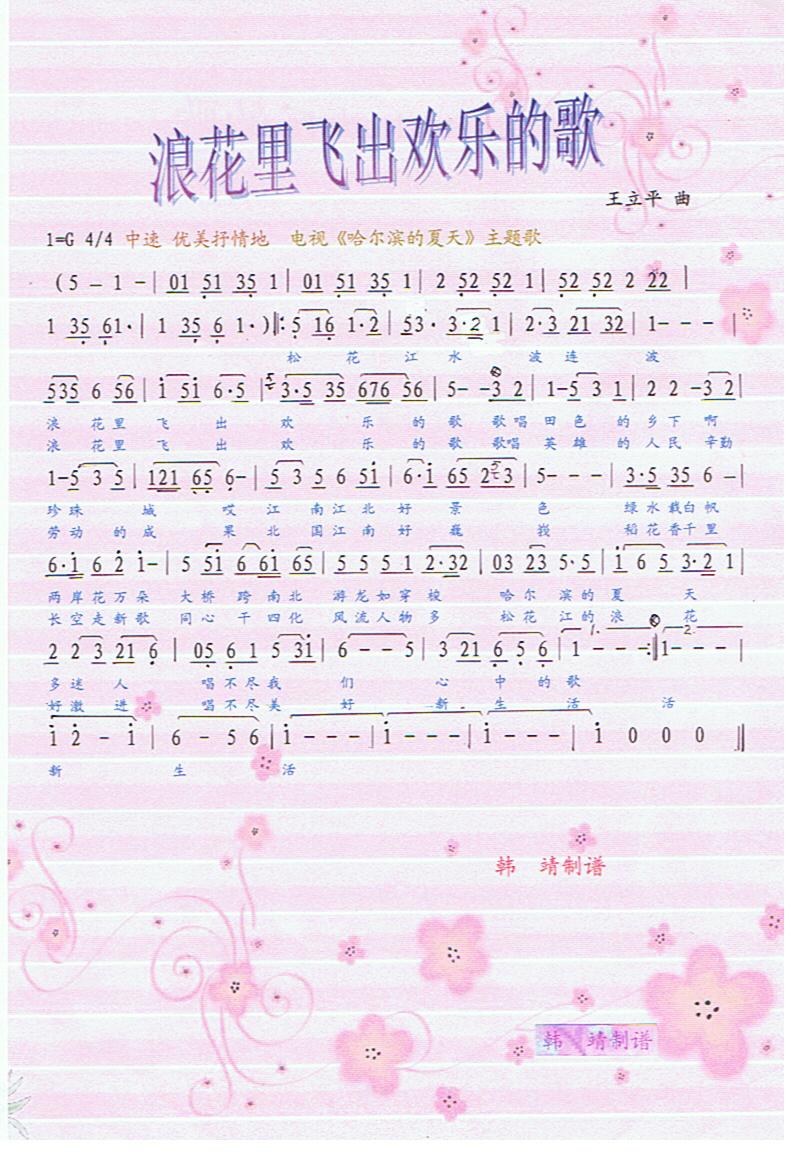 浪花里飞出欢乐的歌
王立平 曲
1=G 4/4 中速 优美抒情地 电视《哈尔滨的夏天》主题歌
(5 – 1 –| 01 51 35 1| 01 51 35 1| 2 52 52 1| 52 52 2 22|
1 35 61·| 1 35 6 1·)‖: 5 16 1·2| 53· 3·2 1| 2·3 21 32| 1- - -|
松 花 江 水 波 连 波
535 6 56| i 5i 6·5| 3·5 35 676 56| 5- -3 2| 1-5 3 1| 2 2 -3 2|
浪 花 里 飞 出 欢 乐 的 歌 歌唱 田 色 的 乡 下 啊
浪 花 里 飞 出 欢 乐 的 歌 歌唱 英 雄 的 人 民 辛勤
1-5 3 5| 121 65 6-| 5 3 5 6 5i| 6·i 65 253| 5- - -| 3·5 35 6 –|
珍 珠 城 哎 江 南 江 北 好 景 色 绿 水 载白 帆
劳 动 的 成 果 北 国 江 南 好 巍 峩 稻 花 香千 里
6·i 62 i-| 5 5i 6 6i 65| 5 5 5 1 2·32| 03 23 5·5| i 6 5 3·2 1|
两 岸 花 万 朵 大 桥 跨 南 北 游 龙 如 穿 梭 哈 尔 滨 的 夏 天
长 空 走 新 歌 同 心 干 四 化 风 流 人 物 多 松 花 江 的 浪 花
2 2 3 21 6| 05 6 1 5 3i| 6 – – 5| 3 21 6 5 6| 1 – – –:‖1- - -|
1. 2.
多 迷 人 唱 不 尽 我 们 心 中 的 歌
好 激 进 唱 不 尽 美 好 新 生 活 活
i 2 – i| 6 – 5 6| i – – –| i – – –| i – – –| i 0 0 0 ‖
新 生 活
韩 靖制谱
韩 靖制谱